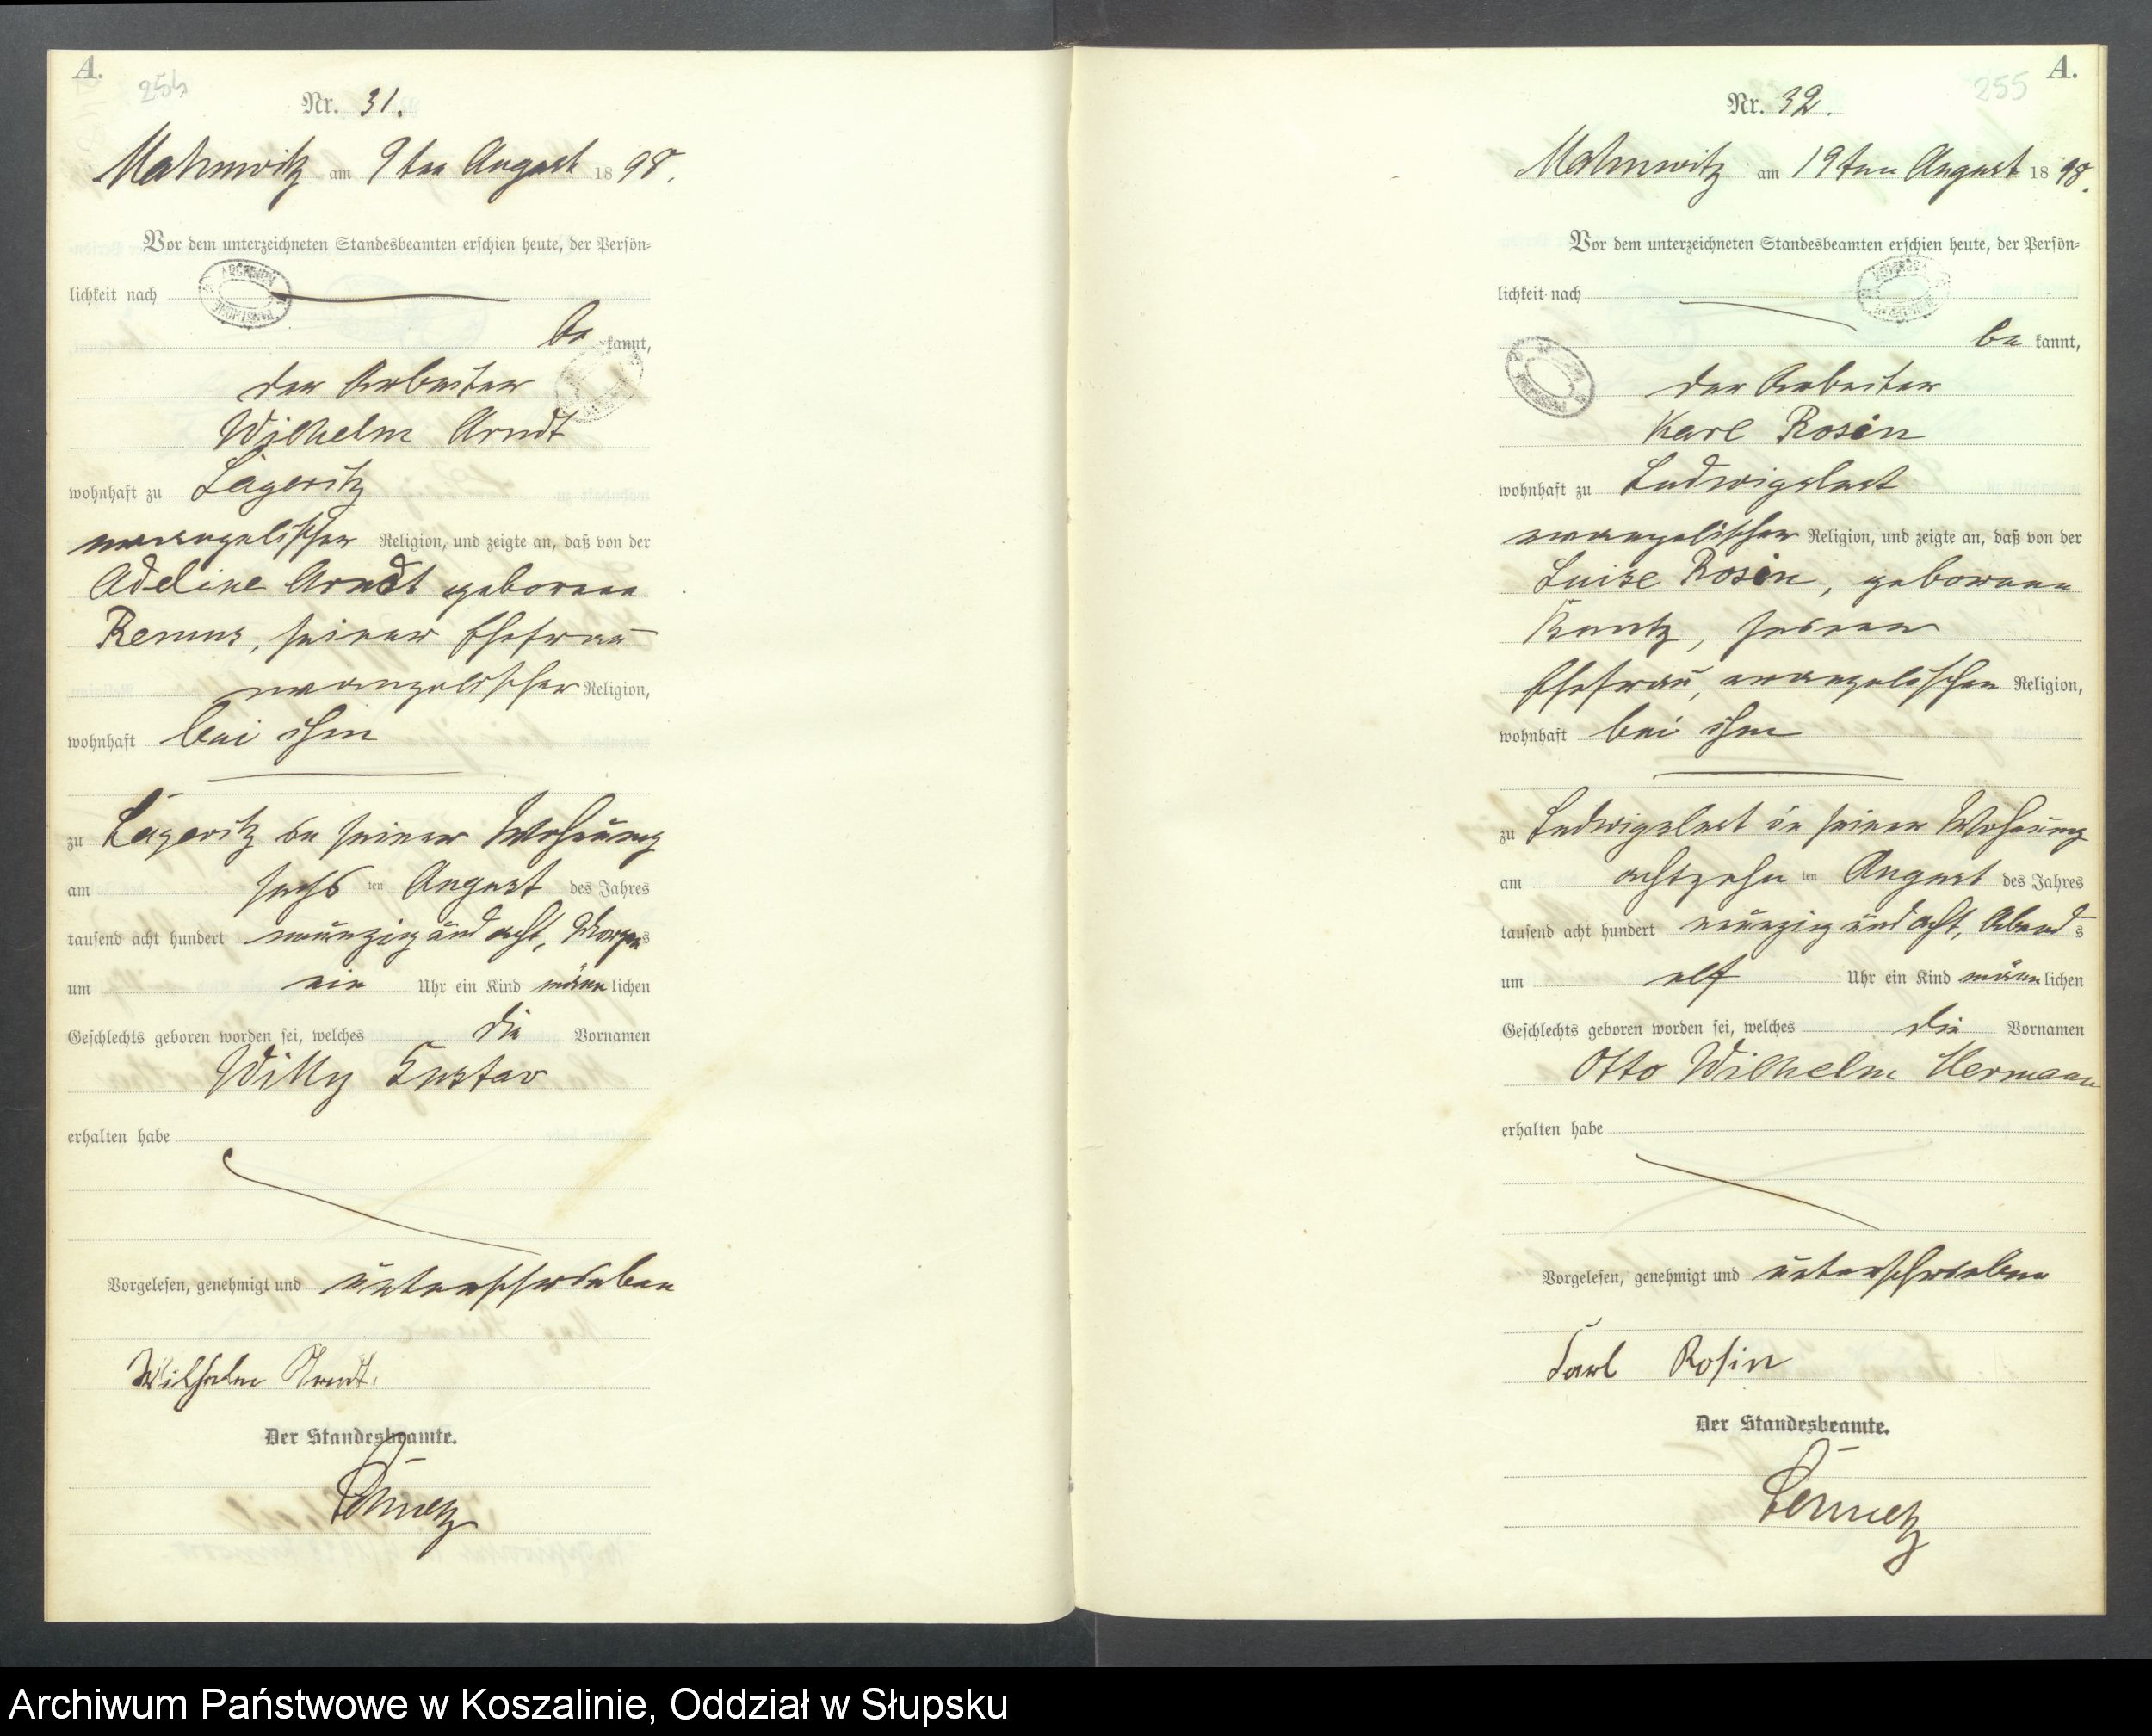 A.
254
Nr. 31.
Mahnwitz am 9ten August 1898.
Vor dem unterzeichneten Standesbeamten erschien heute, der Persön=
lichkeit nach
be kannt,
der Arbeiter
Wilhelm Arndt
wohnhaft zu Lägeritz
evangelischer Religion, und zeigte an, daß von der
Adeline Arndt geborene
Remus, seiner Ehefrau
evangelischer Religion,
wohnhaft bei ihm
zu Lägeritz in seiner Wohnung
am sechs ten August des Jahres
tausend acht hundert neunzig und acht, Morgens
um ein Uhr ein Kind männlichen
Geschlechts geboren worden sei, welches die Vornamen
Willy Gustav
erhalten habe
Vorgelesen, genehmigt und unterschrieben
Wilhelm Arndt.
Der Standesbeamte.
A.
255
Nr. 32.
Mahnwitz am 19ten August 1898.
Vor dem unterzeichneten Standesbeamten erschien heute, der Persön=
lichkeit nach
be kannt,
der Arbeiter
Karl Rosin
wohnhaft zu Ludwigslust
evangelischer Religion, und zeigte an, daß von der
Luise Rosin, geborene
seiner
Ehefrau, evangelischen Religion,
wohnhaft bei ihm
zu Ludwigslust in seiner Wohnung
am achtzehn ten August des Jahres
tausend acht hundert neunzig und acht, Abends
um elf Uhr ein Kind männlichen
Geschlechts geboren worden sei, welches die Vornamen
Otto Wilhelm Hermann
erhalten habe
Vorgelesen, genehmigt und unterschrieben
Carl Rosin
Der Standesbeamte.
Archiwum Państwowe w Koszalinie, Oddział w Słupsku